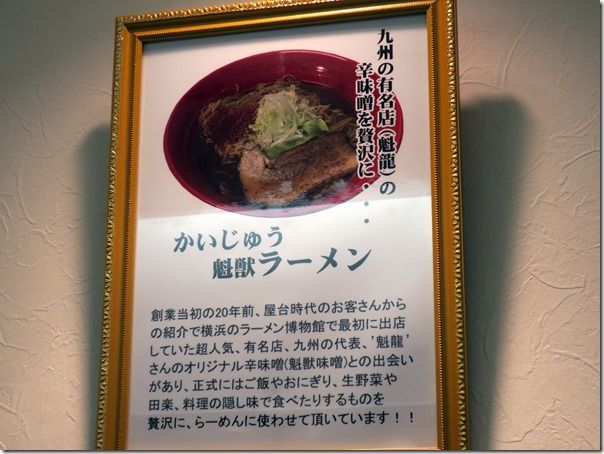 九州の有名店(魁龍)の
辛味噌を贅沢に・・・・
かいじゅう
魁獣ラーメン
創業当初の20年前、屋台時代のお客さんから
の紹介で横浜のラーメン博物館で最初に出店
していた超人気、有名店、九州の代表、’魁龍’
さんのオリジナル辛味噌(魁獣味噌)との出会い
があり、正式にはご飯やおにぎり、生野菜や
田楽、料理の隠し味で食べたりするものを
贅沢に、らーめんに使わせて頂いています！！